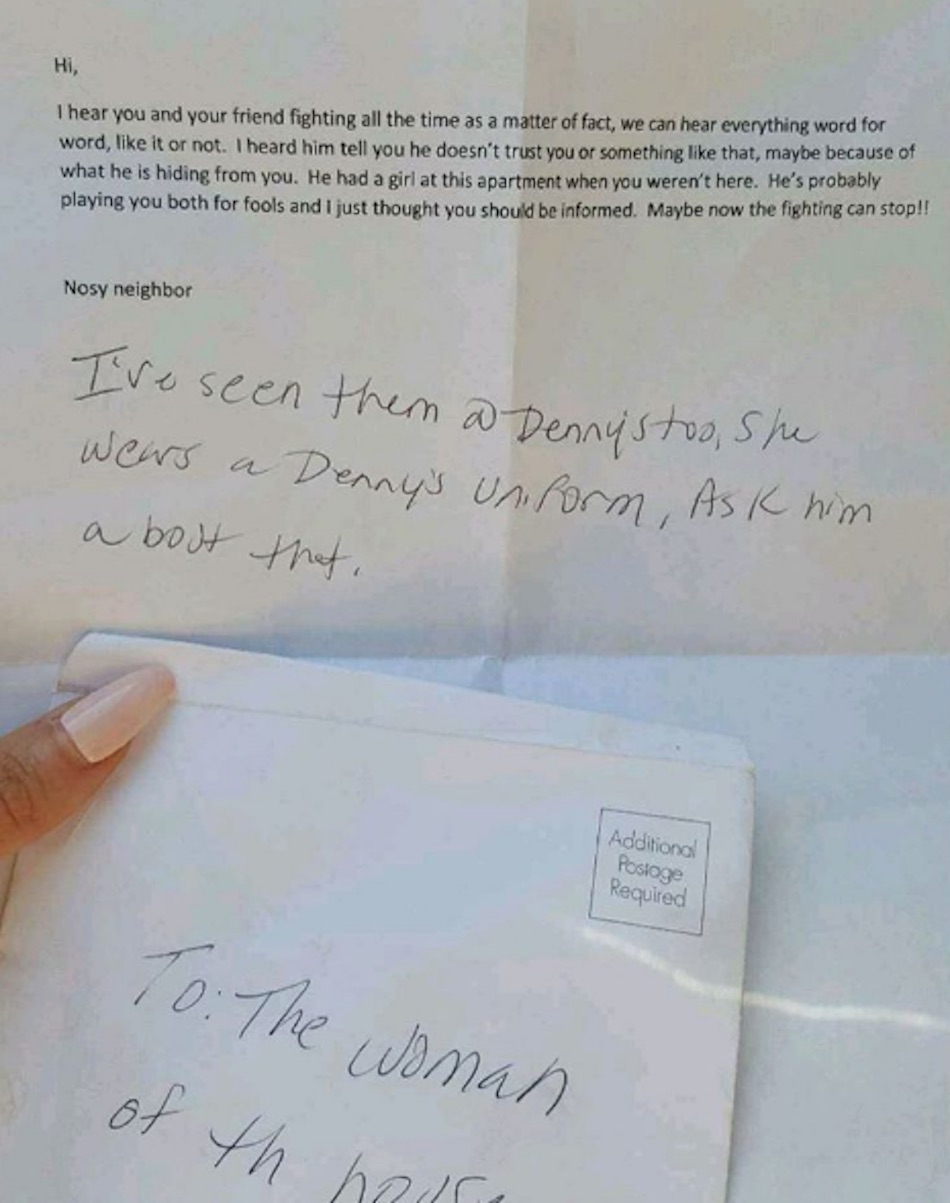 Hi,
I hear you and your friend fighting all the time as a matter of fact, we can hear everything word for
word, like it or not. I heard him tell you he doesn't trust you or something like that, maybe because of
what he is hiding from you. He had a girl at this apartment when you weren't here. He's probably
playing you both for fools and I just thought you should be informed. Maybe now the fighting can stop!!
Nosy neighbor
I've seen them @ Denny's too, She
wears a Denny's Uniform, Ask him
about that.
Additional
Postage
Required
To: The woman
of th house